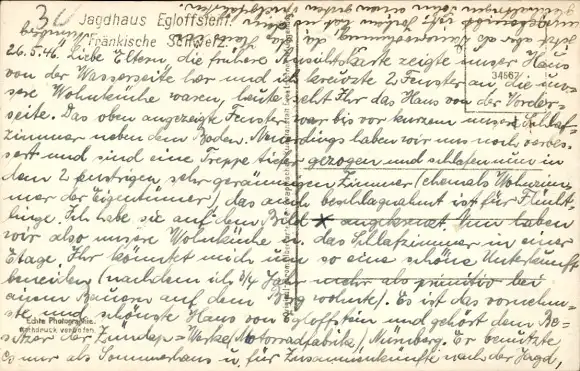 Jagdhaus Egloffstein.
Fränkische Schweiz.
34567
26.5.46. Liebe Eltern, die frühere Ansichtskarte zeigte unser Haus
von der Wasserseite her und ich kreuzte 2 Fenster an die un-
sere Wohnküche waren, heute seht Ihr das Haus von der Vorder-
seite. Das oben angezeigte Fenster war bis vor kurzem unser Schlaf-
zimmer neben dem Boden. Neuerdings haben wir uns noch verbes-
sert und sind eine Treppe tiefer gezogen und schlafen nun in
dem 2 fenstrigen sehr geräumigen Zimmer (ehemals Wohnzim-
mer der Eigentümer), das auch beschlagnahmt ist für Flücht-
linge. Ich habe sie auf dem Bild * angekreuzt. Nun haben
wir also unsere Wohnküche u. das Schlafzimmer in einer
Etage. Ihr könntet mich um so eine schöne Unterkunft
beneiden (nachdem ich 3/4 Jahr mehr als primitiv bei
einem Bauern auf dem Berg wohnte). Es ist das vornehm-
ste und schönste Haus von Egloffstein und gehört dem Be-
sitzer der Zündapp-Werke (Motorradfabrik) Nürnberg. Er benutzte
es nur als Sommerhaus u. für Zusammenkünfte nach der Jagd,
Echte Photographie.
Nachdruck verboten.